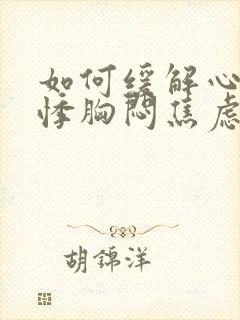 如何缓解心
悸胸闷焦虑
胡锦洋